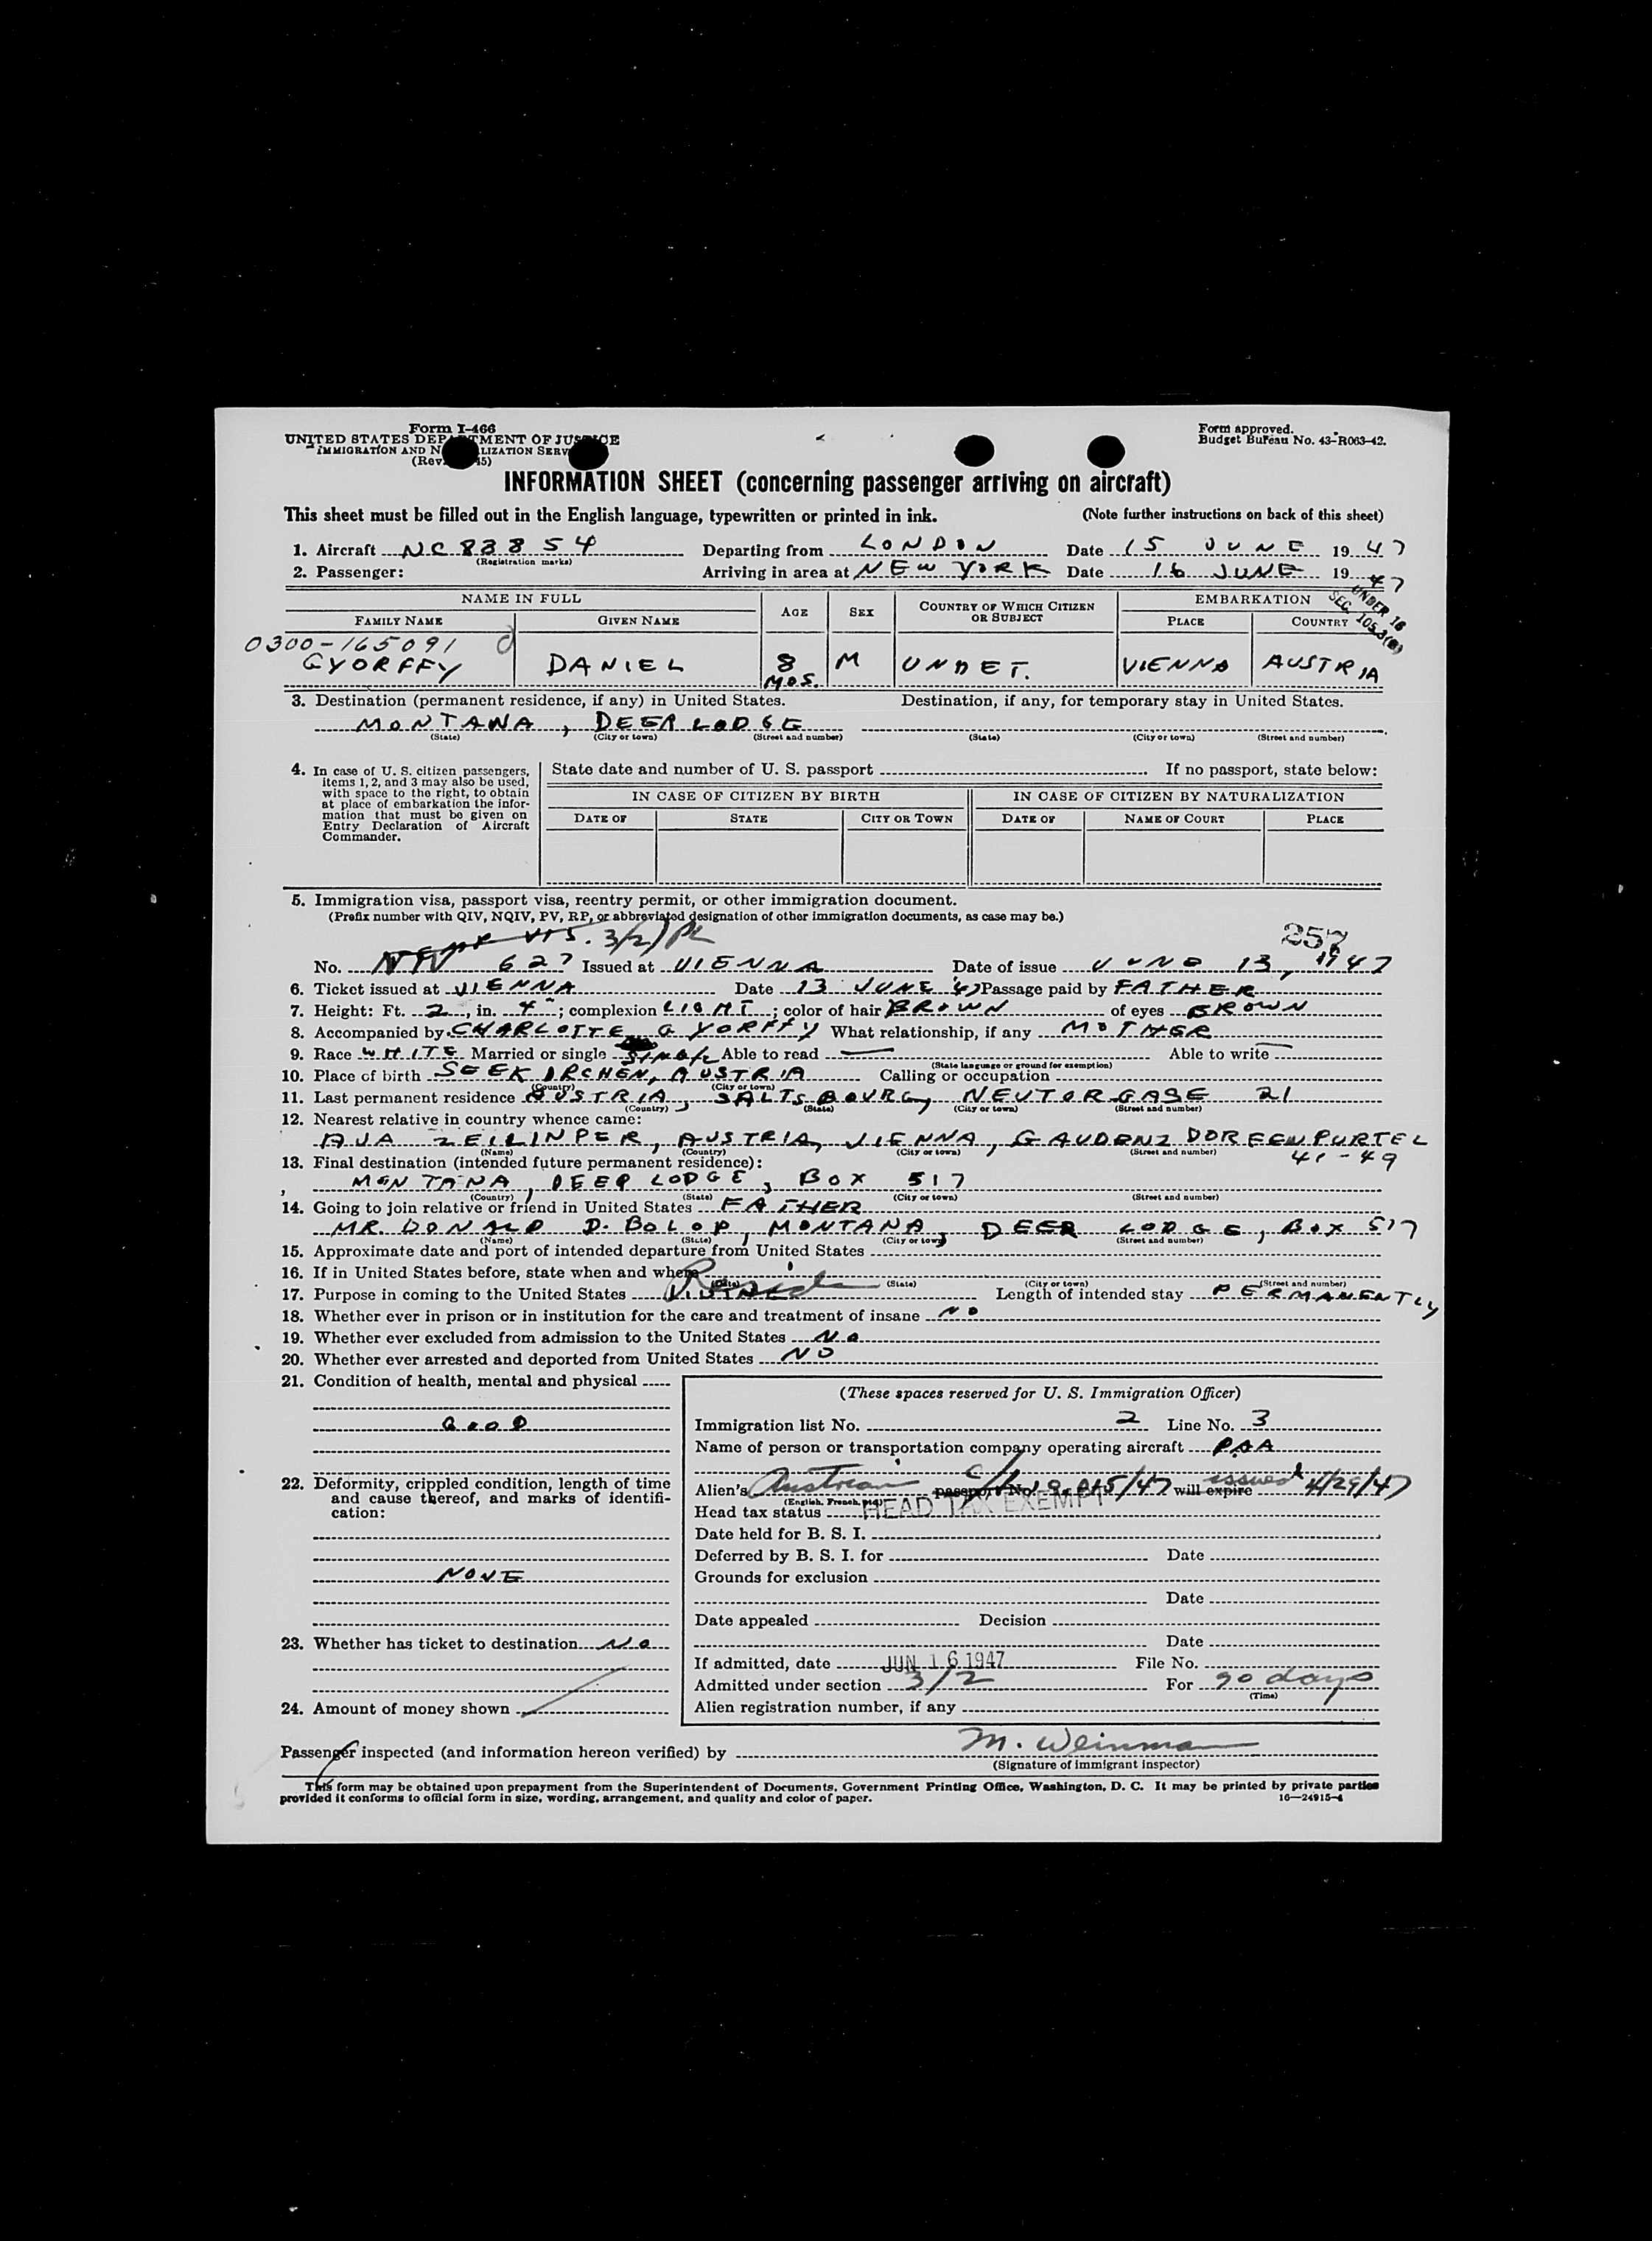 Form I-466
UNITED STATES DEPARTMENT OF JUSTICE
IMMIGRATION AND NATURALIZATION SERVICE
(Rev. 45)
Form approved.
Budget Bureau No. 43-R063-42.
INFORMATION SHEET (concerning passenger arriving on aircraft)
This sheet must be filled out in the English language, typewritten or printed in ink. (Note further instructions on back of this sheet)
1. Aircraft NC 88854 Departing from LONDON Date 15 JUNE 1947
(Registration marks)
2. Passenger: Arriving in area at NEW YORK Date 16 JUNE 1947
UNDER 16
SEC. 105.3(a)
NAME IN FULL AGE SEX COUNTRY OF WHICH CITIZEN OR SUBJECT EMBARKATION
FAMILY NAME GIVEN NAME PLACE COUNTRY
0300-165091
GYORFFY DANIEL 8 MOS. M UNDET. VIENNA AUSTRIA
3. Destination (permanent residence, if any) in United States. Destination, if any, for temporary stay in United States.
MONTANA, DEER LODGE
(State) (City or town) (Street and number) (State) (City or town) (Street and number)
4. In case of U. S. citizen passengers, items 1, 2, and 3 may also be used, with space to the right, to obtain at place of embarkation the information that must be given on Entry Declaration of Aircraft Commander.
State date and number of U. S. passport If no passport, state below:
IN CASE OF CITIZEN BY BIRTH IN CASE OF CITIZEN BY NATURALIZATION
DATE OF STATE CITY OR TOWN DATE OF NAME OF COURT PLACE
5. Immigration visa, passport visa, reentry permit, or other immigration document.
(Prefix number with QIV, NQIV, PV, RP, or abbreviated designation of other immigration documents, as case may be.)
TEMP VIS. 3/2)
257
No. 627 Issued at VIENNA Date of issue JUNE 13, 1947
6. Ticket issued at VIENNA Date 13 JUNE 47 Passage paid by FATHER
7. Height: Ft. 2, in. 4; complexion LIGHT; color of hair BROWN of eyes BROWN
8. Accompanied by CHARLOTTE GYORFFY What relationship, if any MOTHER
9. Race WHITE Married or single SINGLE Able to read — Able to write —
(State language or ground for exemption)
10. Place of birth SEEKIRCHEN, AUSTRIA Calling or occupation
(Country) (City or town)
11. Last permanent residence AUSTRIA, SALTSBOURG, NEUTORGASE 21
(Country) (State) (City or town) (Street and number)
12. Nearest relative in country whence came:
AJA ZEILINPER, AUSTRIA, VIENNA, GAUDENZ DOREEWPURTEL 41-49
(Name) (Country) (City or town) (Street and number)
13. Final destination (intended future permanent residence):
MONTANA, DEER LODGE, BOX 517
(Country) (State) (City or town) (Street and number)
14. Going to join relative or friend in United States FATHER
MR. DONALD D. BOLOP, MONTANA, DEER LODGE, BOX 517
(Name) (State) (City or town) (Street and number)
15. Approximate date and port of intended departure from United States
16. If in United States before, state when and where
(Date) (State) (City or town) (Street and number)
17. Purpose in coming to the United States Reside Length of intended stay PERMANENTLY
18. Whether ever in prison or in institution for the care and treatment of insane NO
19. Whether ever excluded from admission to the United States NO
20. Whether ever arrested and deported from United States NO
21. Condition of health, mental and physical
GOOD
22. Deformity, crippled condition, length of time and cause thereof, and marks of identification:
NONE
23. Whether has ticket to destination NO
24. Amount of money shown
(These spaces reserved for U. S. Immigration Officer)
Immigration list No. 2 Line No. 3
Name of person or transportation company operating aircraft PAA
Alien's Austrian passport No. will expire issued 4/29/47
(English, French, etc.)
Head tax status HEAD TAX EXEMPT
Date held for B. S. I.
Deferred by B. S. I. for Date
Grounds for exclusion
Date
Date appealed Decision
Date
If admitted, date JUN 16 1947 File No.
Admitted under section 3/2 For 90 days
(Time)
Alien registration number, if any
Passenger inspected (and information hereon verified) by M. Weinman
(Signature of immigrant inspector)
This form may be obtained upon prepayment from the Superintendent of Documents, Government Printing Office, Washington, D. C. It may be printed by private parties
provided it conforms to official form in size, wording, arrangement, and quality and color of paper. 16—24915-4